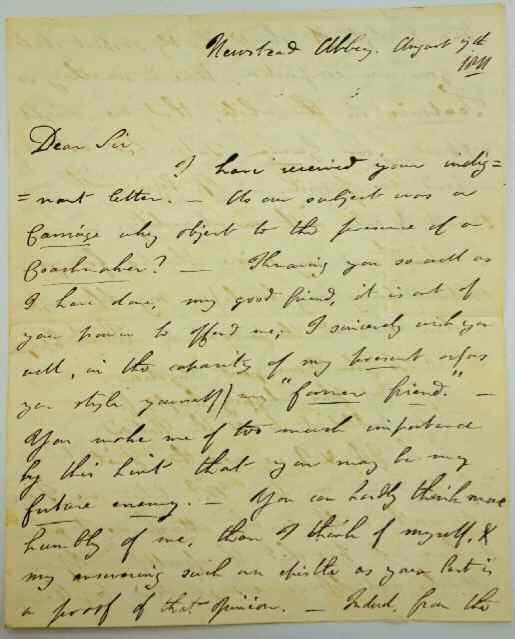 Newstead Abbey. August 9th
1811
Dear Sir,
I have received your indig=
=nant letter. — As our subject was a
Carriage why object to the presence of a
Coachmaker? — Knowing you so well as
I have done, my good friend, it is out of
your power to offend me; I sincerely wish you
well, in the capacity of my present or (as
you style yourself) my "former friend." —
You make me of too much importance
by this hint that you may be my
future enemy. — You can hardly think more
humbly of me, than I think of myself, &
my answering such an epistle as your last is
a proof of that opinion. — Indeed, from the